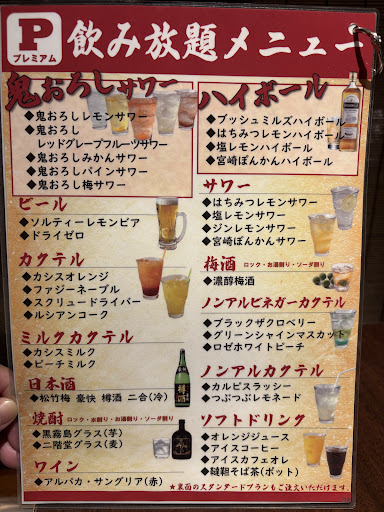 P
プレミアム
飲み放題メニュー
鬼おろしサワー
◆鬼おろしレモンサワー
◆鬼おろし
レッドグレープフルーツサワー
◆鬼おろしみかんサワー
◆鬼おろしパインサワー
◆鬼おろし梅サワー
ビール
◆ソルティーレモンビア
◆ドライゼロ
カクテル
◆カシスオレンジ
◆ファジーネーブル
◆スクリュードライバー
◆ルシアンコーク
ミルクカクテル
◆カシスミルク
◆ピーチミルク
日本酒
◆松竹梅 豪快 樽酒 二合(冷)
焼酎 ロック・水割り・お湯割り・ソーダ割り
◆黒霧島グラス(芋)
◆二階堂グラス(麦)
ワイン
◆アルパカ・サングリア(赤)
ハイボール
◆ブッシュミルズハイボール
◆はちみつレモンハイボール
◆塩レモンハイボール
◆宮崎ぽんかんハイボール
サワー
◆はちみつレモンサワー
◆塩レモンサワー
◆ジンレモンサワー
◆宮崎ぽんかんサワー
梅酒 ロック・お湯割り・ソーダ割り
◆濃醇梅酒
ノンアルビネガーカクテル
◆ブラックザクロベリー
◆グリーンシャインマスカット
◆ロゼホワイトピーチ
ノンアルカクテル
◆カルピスラッシー
◆つぶつぶレモネード
ソフトドリンク
◆オレンジジュース
◆アイスコーヒー
◆アイスカフェオレ
◆韃靼そば茶(ポット)
★裏面のスタンダードプランもご注文いただけます。